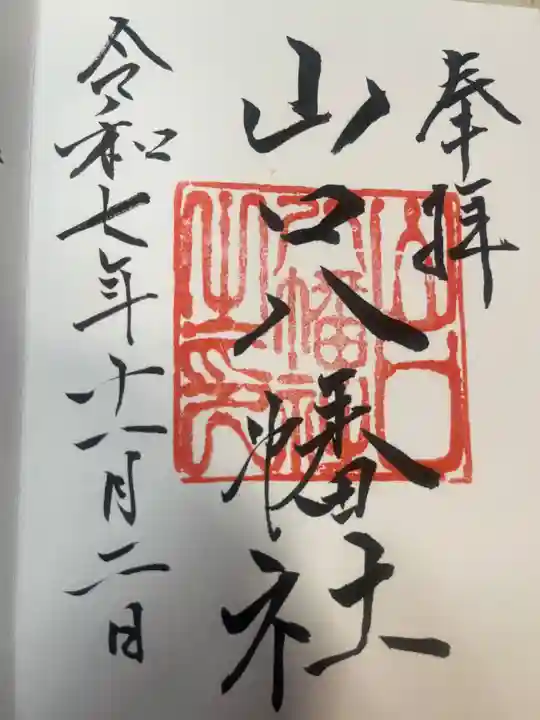 奉拝
山口八幡社
山口八幡社之印
令和七年十一月二日